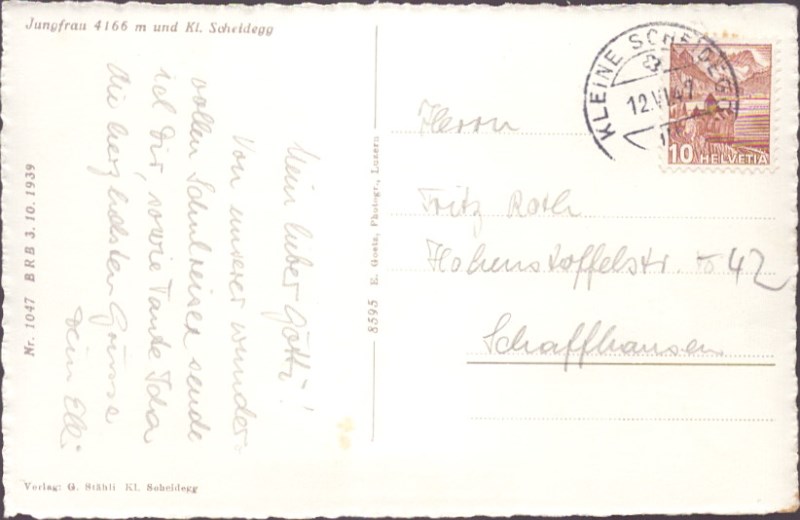 Jungfrau 4166 m und Kl. Scheidegg
Mein lieber Götti!
Von unserer wunder=
vollen Schulreise sende
ich Dir, sowie Tante Ida
die herzlichsten Grüsse
Dein Elli
Nr. 1047 BRB 3. 10. 1939
Verlag: G. Stähli Kl. Scheidegg
8595 E. Goetz, Photogr., Luzern
KLEINE SCHEIDEGG
12.VI.47
10 HELVETIA
Herrn
Fritz Roth
Hohenstoffelstr. 42
Schaffhausen